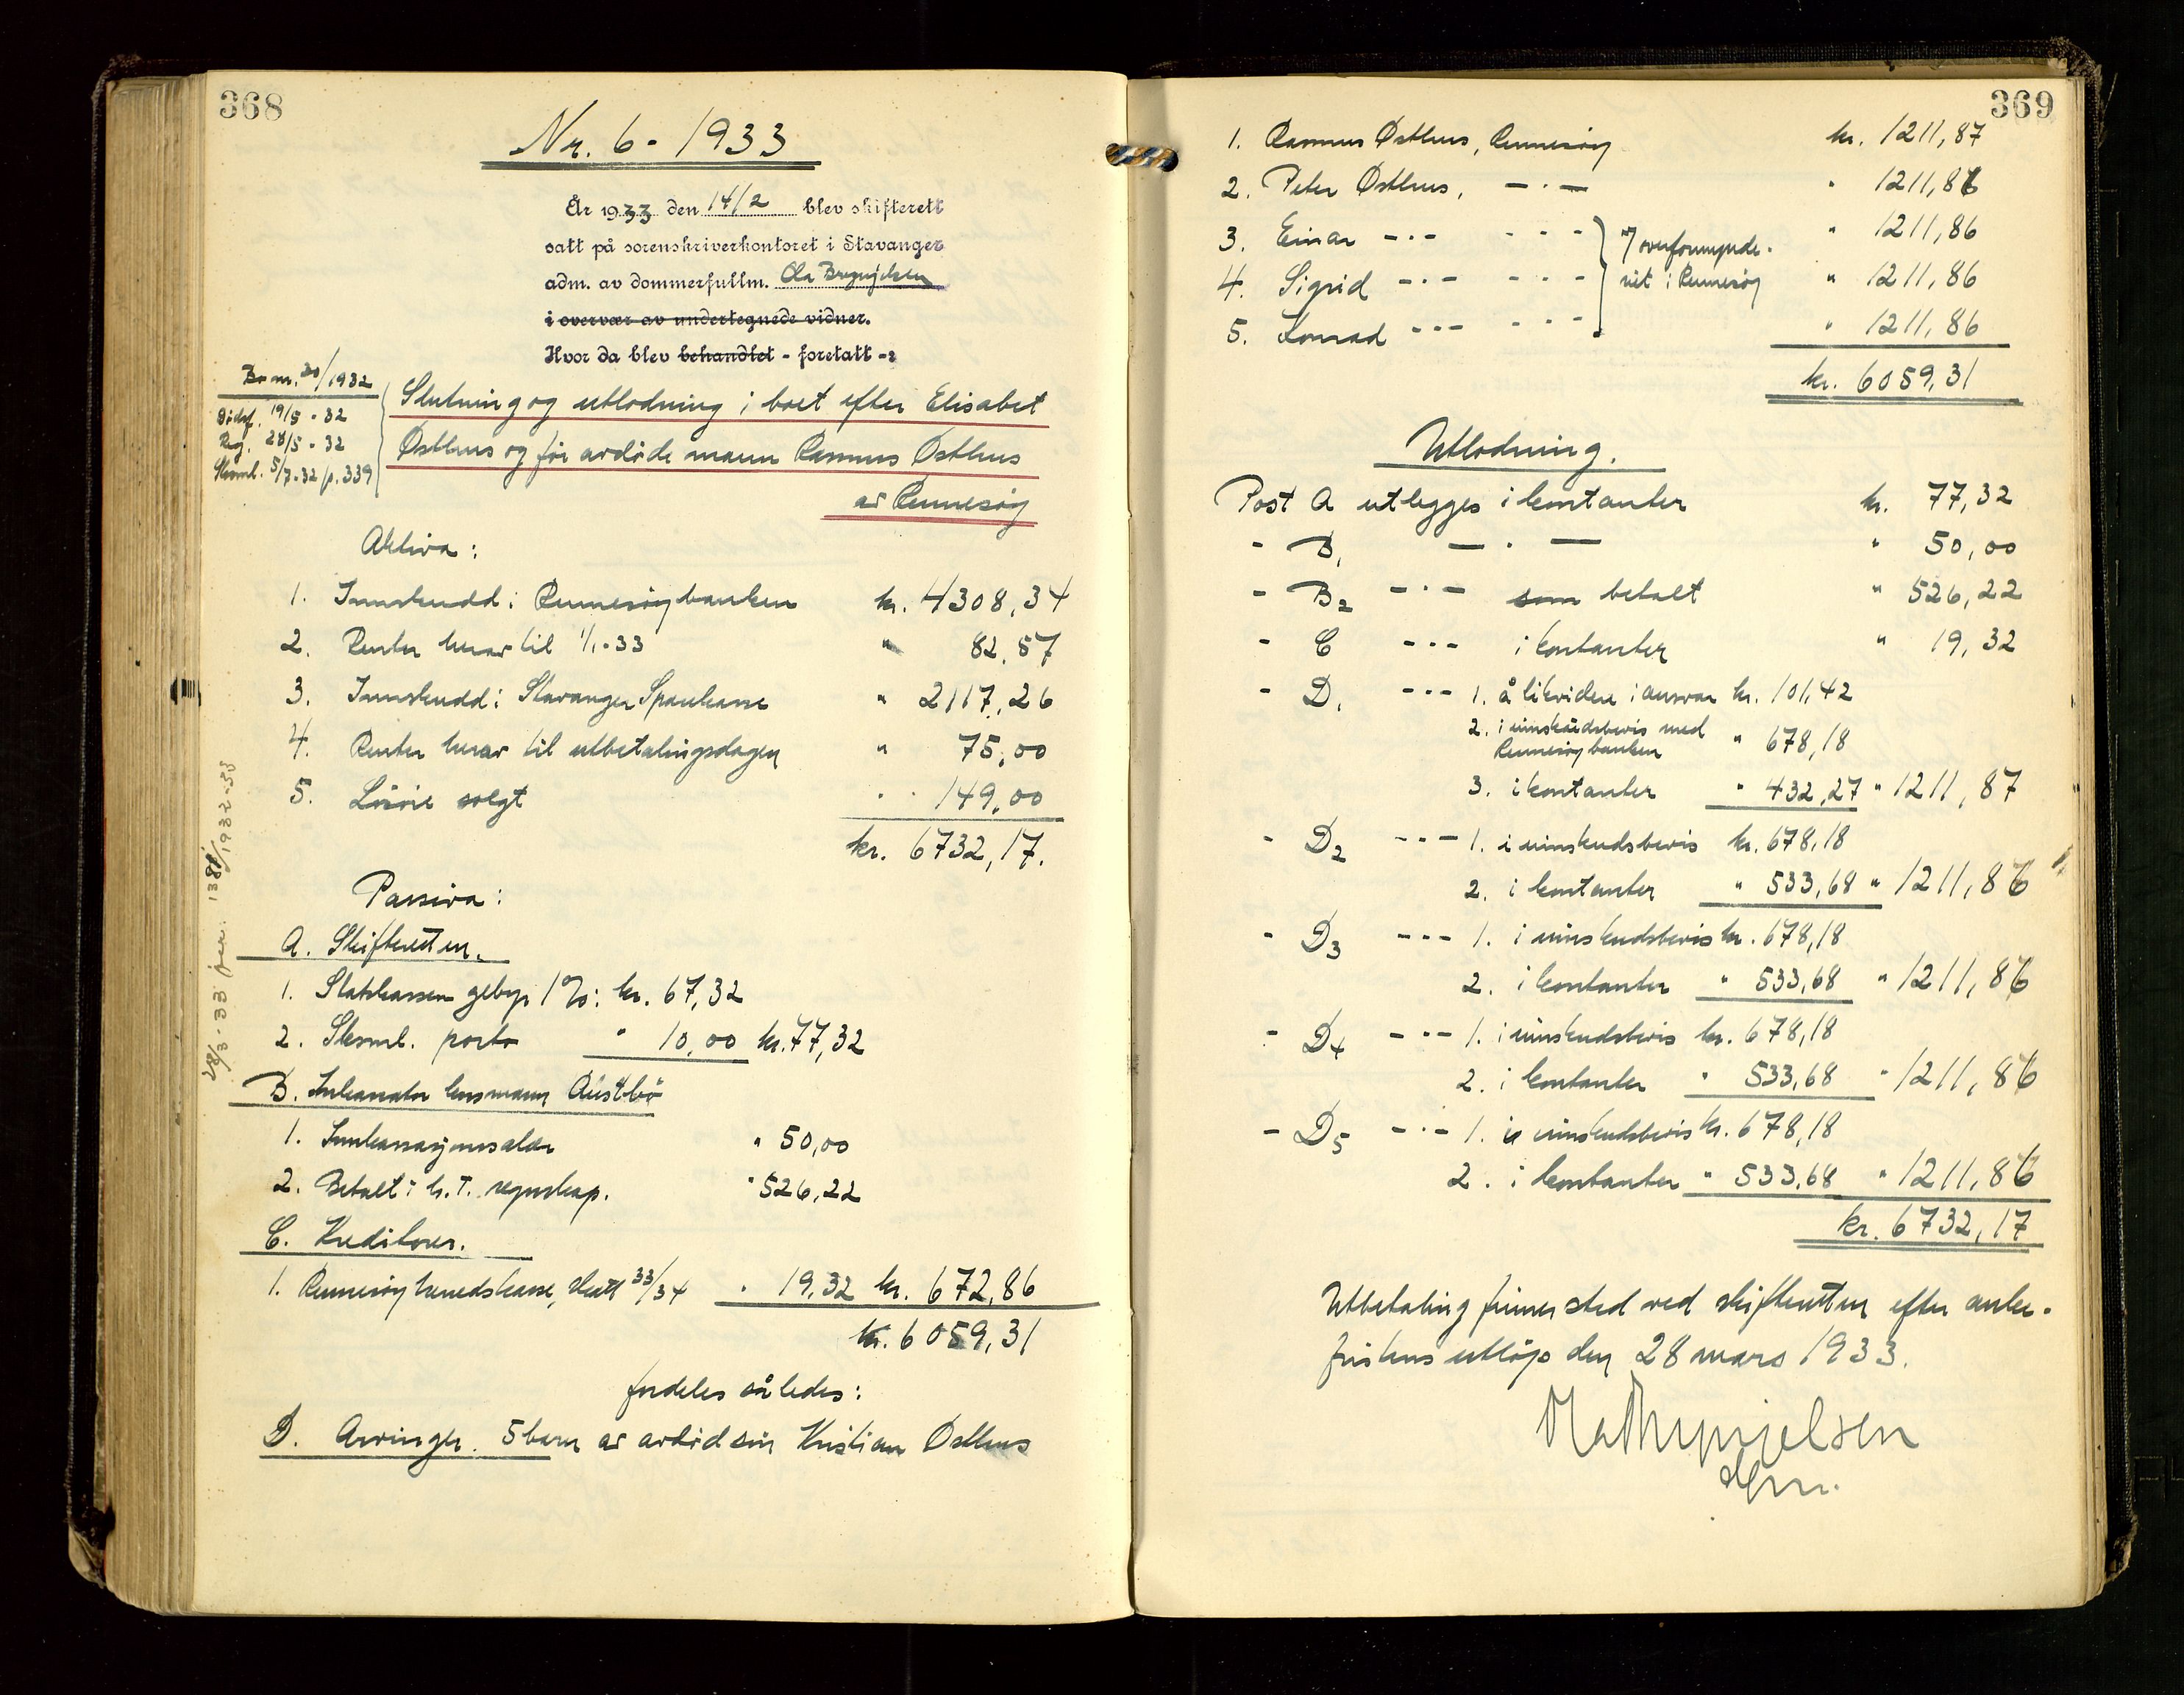 368
Nr. 6 - 1933
År 1933 den 14/2 blev skifterett
satt på sorenskriverkontoret i Stavanger
adm. av dommerfullm. Ola Brynjelsen
i overvær av undertegnede vidner.
Hvor da blev behandlet - foretatt -:
Bo nr. 30/1932
Dødsf. 19/5 - 32
Reg. 28/5 - 32
Sksml. 5/7-32 p. 339
Slutning og utlodning i boet efter Elisabet
Østhus og før avdøde mann Rasmus Østhus
av Rennesøy
Aktiva:
1. Innskudd i Rennesøybanken kr. 4308,34
2. Renter herav til 1/1-33 " 82,57
3. Innskudd i Stavanger Sparekasse " 2117,26
4. Renter herav til utbetalingsdagen " 75,00
5. Løsøre solgt " 149,00
kr. 6732,17.
Passiva:
A. Skifteretten.
1. Statskassen gebyr 1%: kr. 67,32
2. Sksml. porto " 10,00 kr. 77,32
B. Inkassator lensmann Austbø
1. Innkassasjonssalær " 50,00
2. Betalt i h.t. regnskap. " 526,22
C. Kreditorer.
1. Rennesøy herredskasse, skatt 33/34 " 19,32 kr. 672,86
kr. 6059,31
fordeles således:
D. Arvinger. 5 barn av avdød sønn Kristian Østhus
28/3-33 1932-33
369
1. Rasmus Østhus, Rennesøy kr. 1211,87
2. Peter Østhus, — · — " 1211,86
3. Einar - · - - · - } overformynde- " 1211,86
4. Sigrid - · - - · - riet i Rennesøy " 1211,86
5. Konrad - · - - · - " 1211,86
kr. 6059,31
Utlodning.
Post A utlegges i kontanter kr. 77,32
- B1 — · — " 50,00
- B2 - · - som betalt " 526,22
- C - · - i kontanter " 19,32
- D1 - · - 1. å likvidere i ansvar kr. 101,42
2. i innskudsbevis med
Rennesøybanken " 678,18
3. i kontanter " 432,27 " 1211,87
- D2 - · - 1. i innskudsbevis kr. 678,18
2. i kontanter " 533,68 " 1211,86
- D3 - · - 1. i innskudsbevis kr. 678,18
2. i kontanter " 533,68 " 1211,86
- D4 - · - 1. i innskudsbevis kr. 678,18
2. i kontanter " 533,68 " 1211,86
- D5 - · - 1. i innskudsbevis kr. 678,18
2. i kontanter " 533,68 " 1211,86
kr. 6732,17
Utbetaling finner sted ved skifteretten efter anke-
fristens utløp den 28 mars 1933.
Ola Brynjelsen